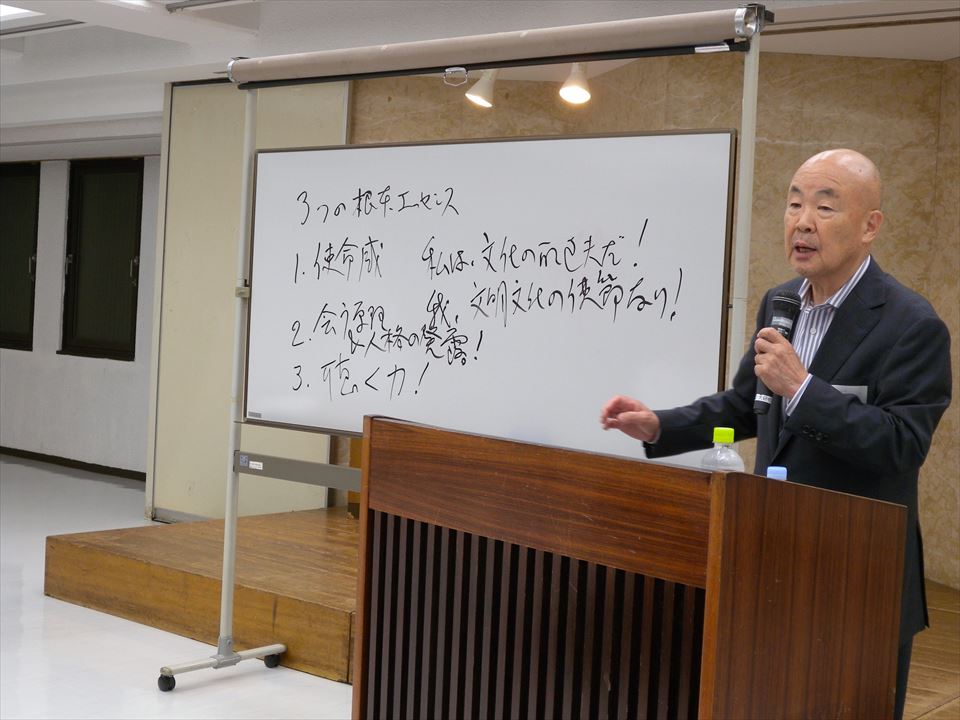 3つの根本エッセンス
1. 使命感 私は、文化の配達夫だ!
我、文明文化の使節なり!
2. 会う原理
人格の發露!
3. 聴く力!